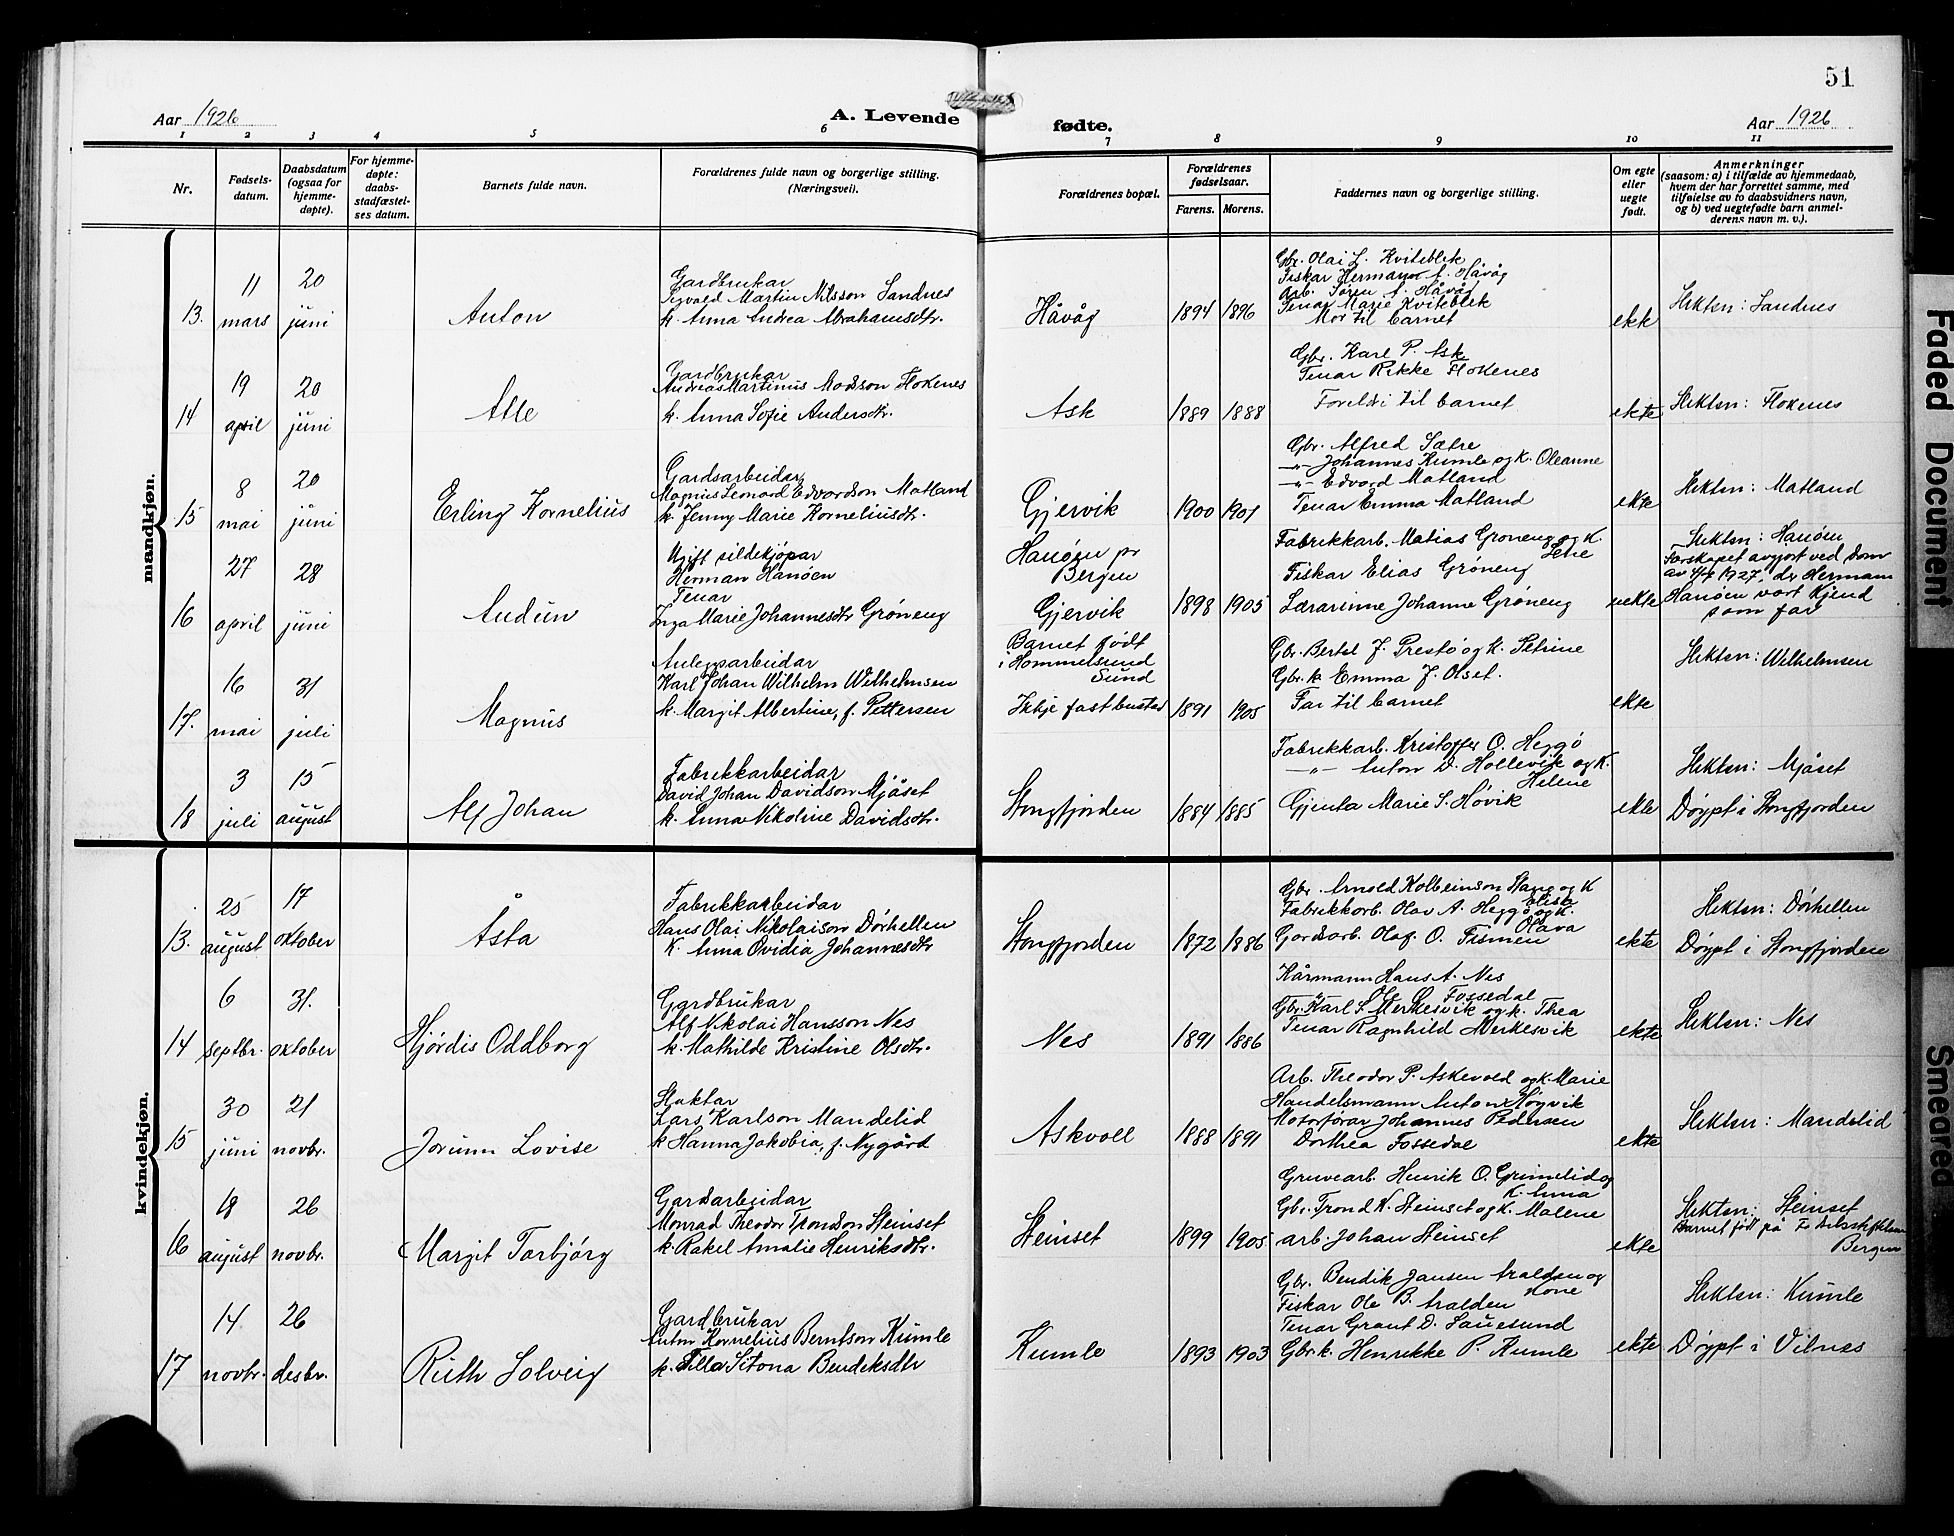 51
Aar 1926
A. Levende fødte.
Aar 1926
1 2 3 4 5 6 7 8 9 10 11
Nr.
Fødsels-
datum.
Daabsdatum
(ogsaa for
hjemme-
døpte).
For hjemme-
døpte:
daabs-
stadfæstel-
ses datum.
Barnets fulde navn.
Forældrenes fulde navn og borgerlige stilling.
(Næringsvei).
Forældrenes bopæl.
Forældrenes
fødselsaar.
Farens. Morens.
Faddernes navn og borgerlige stilling.
Om egte
eller
uegte
født.
Anmerkninger
(saasom: a) i tilfælde av hjemmedaab,
hvem der har forrettet samme, med
tilføielse av to daabsvidners navn,
og b) ved uegtefødte barn anmel-
derens navn m. v.).
mandkjøn.
13.
11
mars
20
juni
Anton
Gardbrukar
Sigvald Martin Nilsson Sandnes
k. Anna Andrea Abrahamsdtr.
Håvåg
1894 1896
Gbr. Olai L. Kviteblik
Fiskar Hermann A. Håvåg
Arb. Søren A. Håvåg
Tenar Marie Kviteblik
Mor til barnet
ekte
Slekten: Sandnes
14
19
april
20
juni
Atle
Gardbrukar
Andreas Martinus Madsson Flokenes
k. Anna Sofie Andersdtr.
Ask
1889 1888
Gbr. Karl P. Ask
Tenar Rikke Flokenes
Foreldri til barnet
ekte
Slekten: Flokenes
15
8
mai
20
juni
Erling Kornelius
Gardsarbeidar
Magnus Leonard Edvardson Matland
k. Jenny Marie Korneliusdtr.
Gjervik
1900 1901
Gbr. Alfred Sætre
-"- Johannes Kumle og k. Oleanne
-"- Edvard Matland
Tenar Emma Matland
ekte
Slekten: Matland
16
27
april
28
juni
Audun
Ugift sildekjøpar
Herman Hanøen
Tenar
Inga Marie Johannesdtr Grøneng
Hanøen pr
Bergen
Gjervik
1898 1905
Fabrikkarb. Matias Groneng og k.
Fiskar Elias Grøneng
Lærarinne Johanne Grøneng
uekte
Slekten: Hanøen
Farskapet avgjort ved Dom
1927, der Hermann
Hanøen vart kjend
som far
17.
16
mai
31
juli
Magnus
Anleggsarbeidar
Karl Johan Wilhelm Wilhelmsen
k. Margit Albertine, f. Pettersen
Barnet født
i Hommelsund
Sund
Ikkje fast bustad
1891 1905
Gbr. Bertel J. Prestø og k. Petrine
Gbr. k Emma J. Olset.
Far til barnet
ekte
Slekten: Wilhelmsen
18
3
juli
15
august
Alf Johan
Fabrikkarbeidar
David Johan Davidson Mjåset
k. Anna Nikoline Davidsdtr.
Stongfjorden
1884 1885
Fabrikkarb. Kristoffer O. Heggø
-"- Anton D. Hollevik og k.
Helene
Gjenta Marie S. Høvik
ekte
Slekten: Mjåset
Døypt i Stongfjorden
kvindekjøn.
13.
25
august
17
oktober
Åsta
Fabrikkarbeidar
Hans Olai Nikolaison Dørhellen
k. Anna Ovidia Johannesdtr
Stongfjorden
1872 1886
Gbr. Arnold Kolbeinson Stang og k
Elise
Fabrikkarb. Olav A. Heggø og k.
Olava
Gardsarb. Olaf O. Tismen
ekte
Slekten: Dørhellen
Døypt i Stongfjorden
14
6
septbr.
31.
oktober
Hjørdis Oddborg
Gardbrukar
Alf Nikolai Hansson Nes
k. Mathilde Kristine Olsdtr.
Nes
1891 1886
Kårmann Hans A. Nes
" Ole O. Fossedal
Gbr. Karl S. Merkesvik og k. Thea
Tenar Ragnhild Merkesvik
ekte
Slekten: Nes
15
30
juni
21
novbr.
Jorunn Lovise
Slaktar
Lars Karlson Mandelid
k Hanna Jakobia, f. Nygård
Askvoll
1888 1891
Arb. Theodor P. Askevold og k. Marie
Handelsmann Anton Høyvik
Motorførar Johannes Pedersen
Dorthea Fossedal
ekte
Slekten: Mandelid
16
18
august
26
novbr.
Margit Torbjørg
Gardsarbeidar
Monrad Theodor Trondson Steinset
k. Rakel Amalie Henriksdtr.
Steinset
1899 1905
Gruvearb. Henrik O. Grimelid og
k. Anna
Gbr. Trond K. Steinset og k. Malene
arb. Johan Steinset
ekte
Slekten: Steinset
Barnet født på
Bergen
17
14
novbr.
26
desbr.
Ruth Solveig
Gardbrukar
Anton Kornelius Berntson Kumle
k. Tilla Sitona Bendeksdtr
Kumle
1893 1903
Gbr. Bendik Jansen Aralden og
kone
Fiskar Ole B. Aralden
Tenar Graut D. Sauesund
Gbr.k. Henrikke P. Kumle
ekte
Slekten: Kumle
Døypt i Vilnes
Faded Document
Smeared